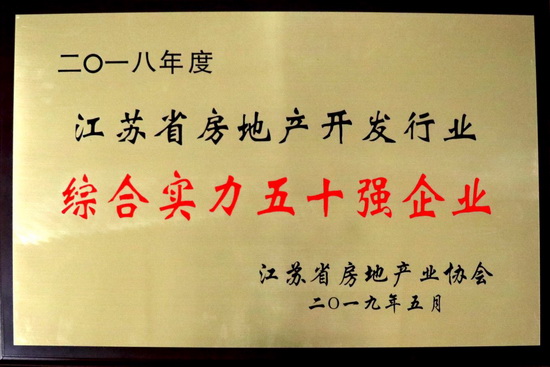 二〇一八年度
江苏省房地产开发行业
综合实力五十强企业
江苏省房地产业协会
二〇一九年五月